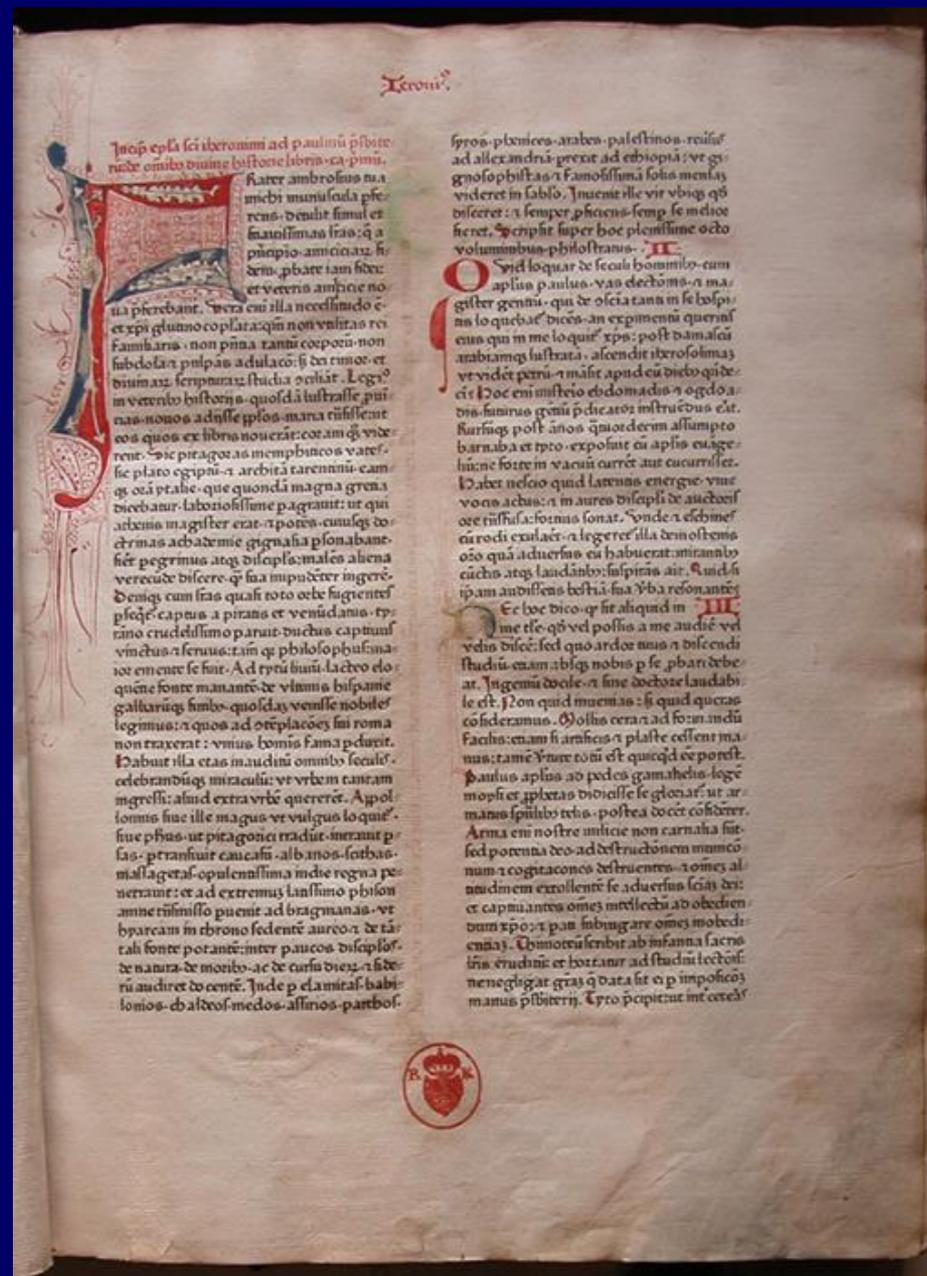 Ieroniꝰ.
Incip̄ ep̄la sc̄i iheronimi ad paulinū p̄sbite-
rū de om̄ibꝰ divine historie libris. ca. p̄mū.
Frater ambrosius tua
michi munuscula ꝑfe-
rens. detulit simul et
suavissimas lr̄as: q̄ a
p̄ncipio amiciciaꝝ. fi-
dem ꝓbate iam fidei:
et veteris amicicie no-
va p̄ferebant. Vera eni illa necessitudo ē-
et xp̄i glutino coplata: qm̄ non vtilitas rei
familiaris. non p̄ntia tantū corporū. non
subdola ⁊ palpās adulacō: s; dei timor. et
divinaꝝ scripturaꝝ studia ɔciliāt. Legiꝰ
in veteribꝰ historijs. quosdā lustrasse ꝓuī-
cias. nouos adijsse ppl̄os. maria trāsisse: ut
eos quos ex libris nouerāt: coram qꝫ vide-
rent. Sic pitagoras memphiticos vates.
sic plato egiptū. ⁊ architā tarentinū. eam-
qꝫ orā ytalie. que quondā magna grecia
dicebatur. laboriosissime pagrauit: ut qui
athenis magister erat. ⁊ potēs. cuiusqꝫ do-
ctrinas achademie gignasia ꝑsonabant.
fiēt pegrinus atqꝫ discipl̄s: malēs aliena
verecūde discere. qꝫ sua impudēter ingerē.
Deniqꝫ cum lr̄as quasi toto orbe fugientes
ꝑseqēt. captus a piratis et venūdatus. ty-
rāno crudelissimo paruit. ductus captiuus
vinctus ⁊ seruus: tam qꝫ philosophus: ma-
ior emente se fuit. Ad tytū liuiū. lacteo elo-
quēcie fonte manantē. de vltimis hispanie
galliarūqꝫ finibꝰ. quosdaꝫ venisse nobiles
legimus: ⁊ quos ad ɔtēplacōeꝫ sui roma
non traxerat: vnius homīs fama pduxit.
Habuit illa etas inauditū omnibꝰ seculis.
celebrandūqꝫ miraculū: vt vrbem tantam
ingressi: aliud extra vrbē quererēt. Appol-
lonius siue ille magus vt vulgus loquit̄.
siue phūs. ut pitagorici tradūt. intrauit p-
sas. ptransiuit caucasū. albanos. scithas.
massagetas. opulentissima indie regna pe-
netrauit: et ad extremuꝫ latissimo phison
amne trāsmisso puenit ad bragmanas. vt
hyarcam in throno sedentē aureo ⁊ de tā-
tali fonte potantē: inter paucos discipl̄os.
de natura. de moribꝰ. ac de cursu dieꝝ. ⁊ side-
rū audiret docentē. Inde p elamitas. babi-
lonios. chaldeos. medos. assirios. parthos.
syros. phenices. arabes. palestinos. reūsus
ad allexandriā. prexit ad ethiopiā: vt gi-
gnosophistas ⁊ famosissimā solis mensaꝫ
videret in sablo. Inuenit ille vir vbiqꝫ qð
disceret: ⁊ semper ꝓficiens. semp se melior
fieret. Scripsit super hoc plenissime octo
voluminibus. philostratus. II
Quid loquar de seculi hominibꝰ. cum
aplūs paulus. vas electiōnis. ⁊ ma-
gister gentiū. qui de ɔscia tanti in se hospi-
tis loquebat̄ dicēs. an expimentū queritis
eius qui in me loquit̄ xp̄s: post damascū
arabiamqꝫ lustratā. ascendit iherosolimaꝫ
vt vidēt petrū. ⁊ māsit apud eū diebꝰ quīde-
cī. Hoc eni misterio ebdomadis ⁊ ogdoa-
dis. futurus gentiū p̄dicator instruēdus eāt.
Rursūqꝫ post ānos q̄tuordecim assumpto
barnaba et tyto. exposuit cū aplīs euāge-
liū: ne forte in vacuū currēt aut cucurrisset.
Habet nescio quid latentis energie. viue
vocis actus: ⁊ in aures discipl̄i de auctoris
ore trāsfusa: fortius sonat. Vnde ⁊ eschines
cū rodi exularet. ⁊ legeret̄ illa demostenis
orō quā aduersus eū habuerat: mirantibꝰ
cūctis atqꝫ laudātibꝰ: suspirās ait. Quid. si
ipam audissetis bestiā. sua v̄ba resonantē.
Hec hoc dico. qꝫ sit aliquid in III
me tle. qð vel possis a me audiē vel
velis discē: sed quo ardor tuus ⁊ discendi
studiū. etiam absqꝫ nobis p se ꝓbari debe-
at. Ingeniū docile. ⁊ sine doctore laudabi-
le est. Non quid inuenias: s; quid queras
cōsideramus. Mollis cera ⁊ ad formandū
facilis: etiam si artificis ⁊ plaste cessent ma-
nus: tamē v̄tute totū est quicqꝫd eē potest.
Paulus aplūs ad pedes gamalielis. legē
moysi et ꝓphetas didicisse se gloriat̄: ut ar-
matus spūalibꝰ telis. postea docēt cōfidēter.
Arma eni nostre milicie non carnalia sūt.
sed potentia deo. ad destructōnem municō-
num ⁊ cogitacones destruentes. ⁊ omēs al-
titudinem extollentē se aduersus sciāꝫ dei:
et captiuantes omēꝫ intellectū ad obedien-
dum xpō: ⁊ pati subiugare omēꝫ inobedi-
entiaꝫ. Thimoteū scribit ab infantia sacris
lrīs eruditū: et hortatur ad studiū lectōis:
ne negligat grāꝫ q̄ data sit ei p imposicōꝫ
manus p̄sbiterij. Tyto p̄cipit: ut int̄ ceteās
B K